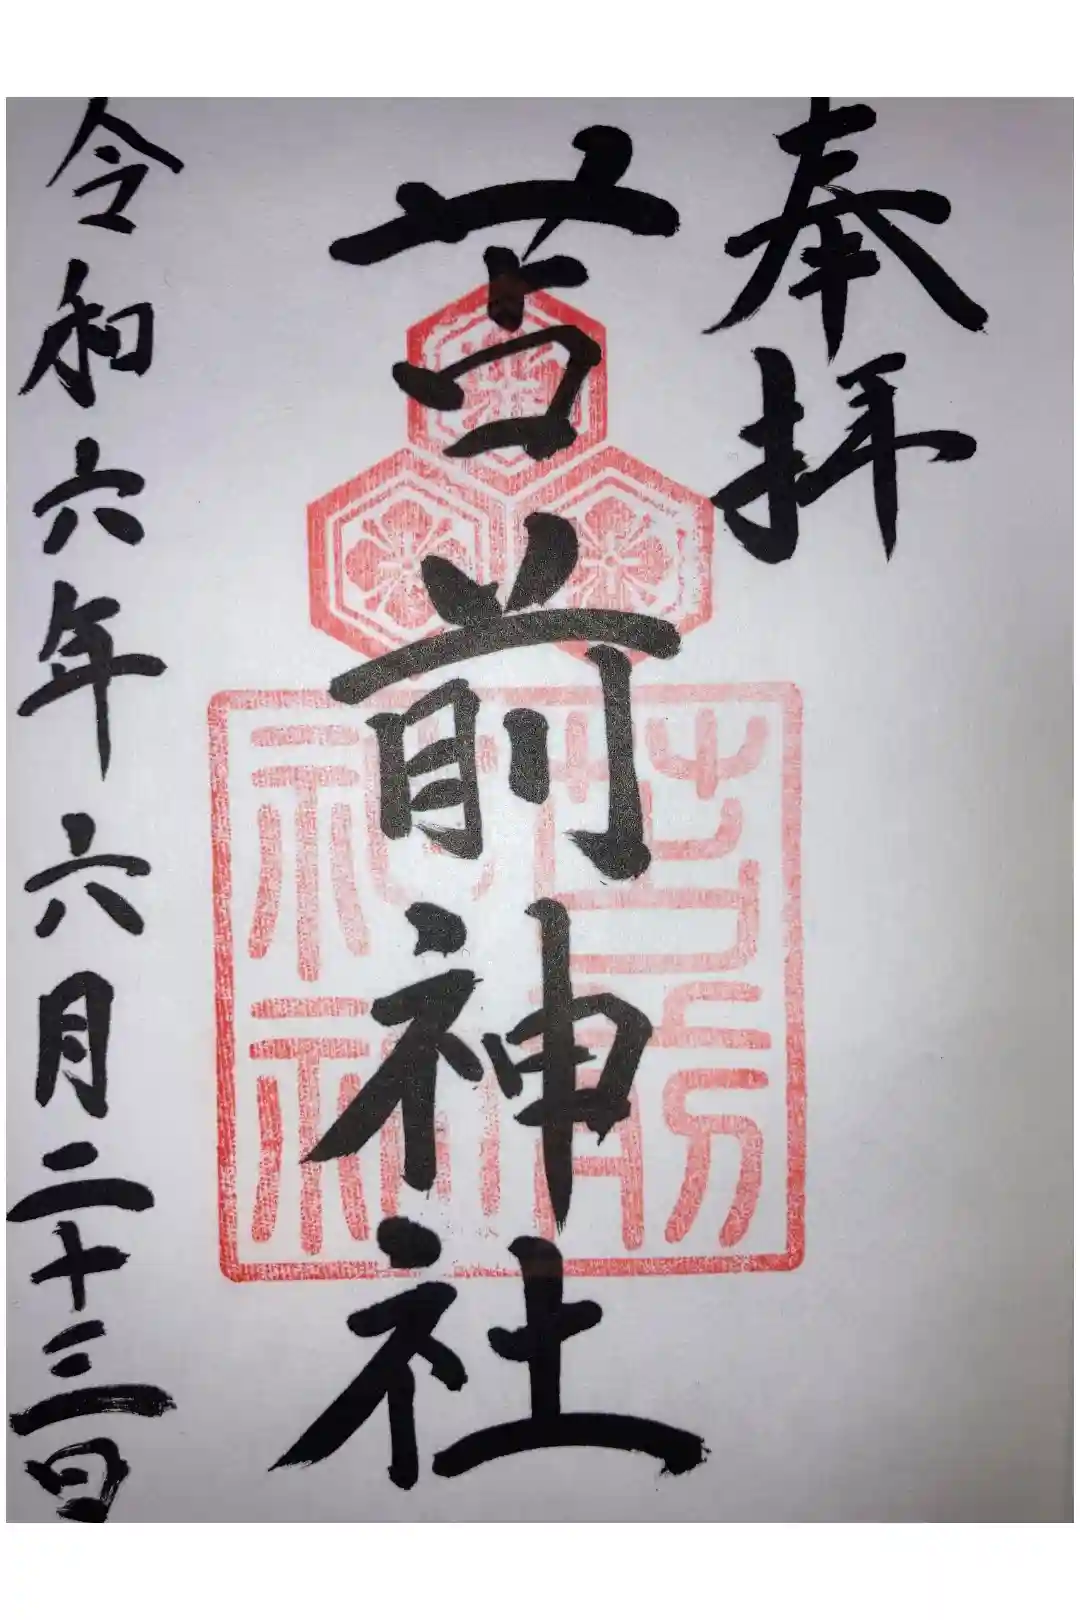 奉拝
苫前神社
令和六年六月二十三日
苫前
神社